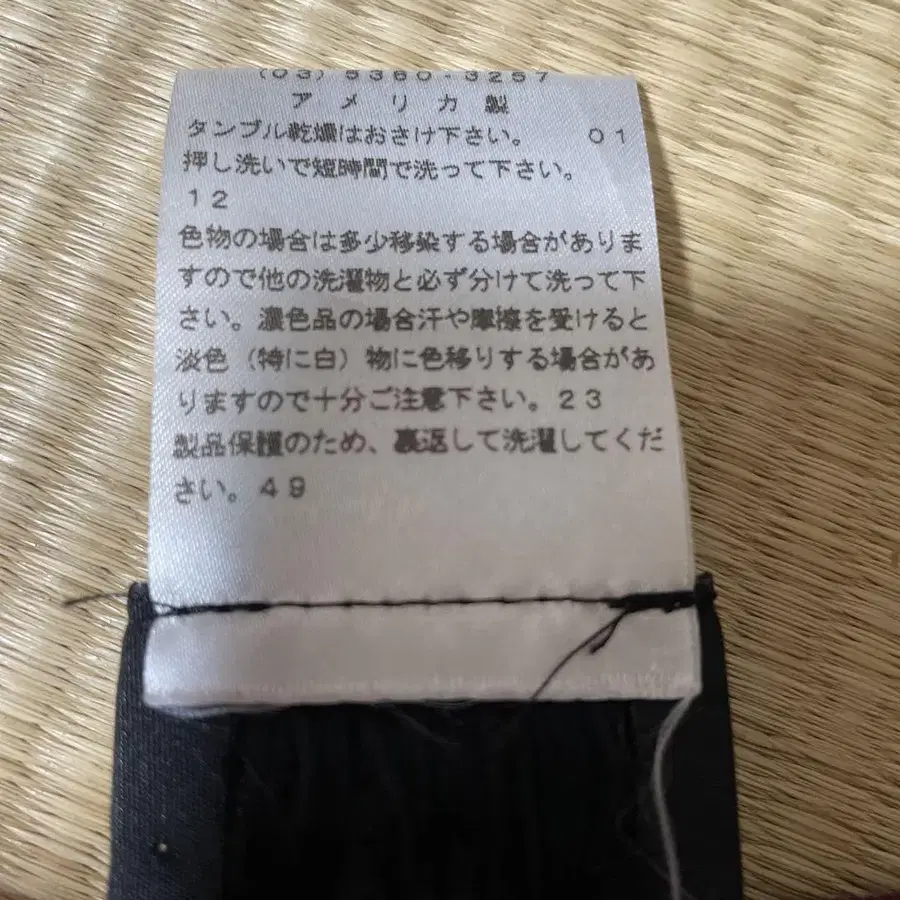 (03) 5360-3257
アメリカ製
タンブル乾燥はおさけ下さい。 01
押し洗いで短時間で洗って下さい。
12
色物の場合は多少移染する場合がありま
すので他の洗濯物と必ず分けて洗って下
さい。濃色品の場合汗や摩擦を受けると
淡色（特に白）物に色移りする場合があ
りますので十分ご注意下さい。23
製品保護のため、裏返して洗濯してくだ
さい。49